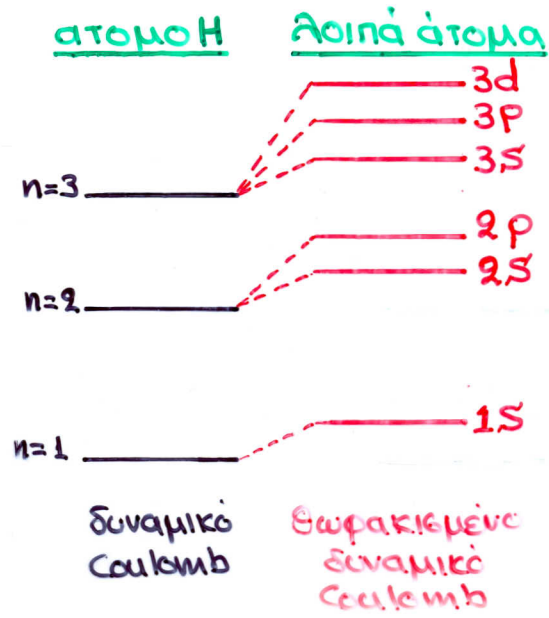 ατομο Η
λοιπά άτομα
3d
3p
3s
n=3
2p
2s
n=2
1s
n=1
δυναμικό
Coulomb
θωρακισμένο
δυναμικό
Coulomb